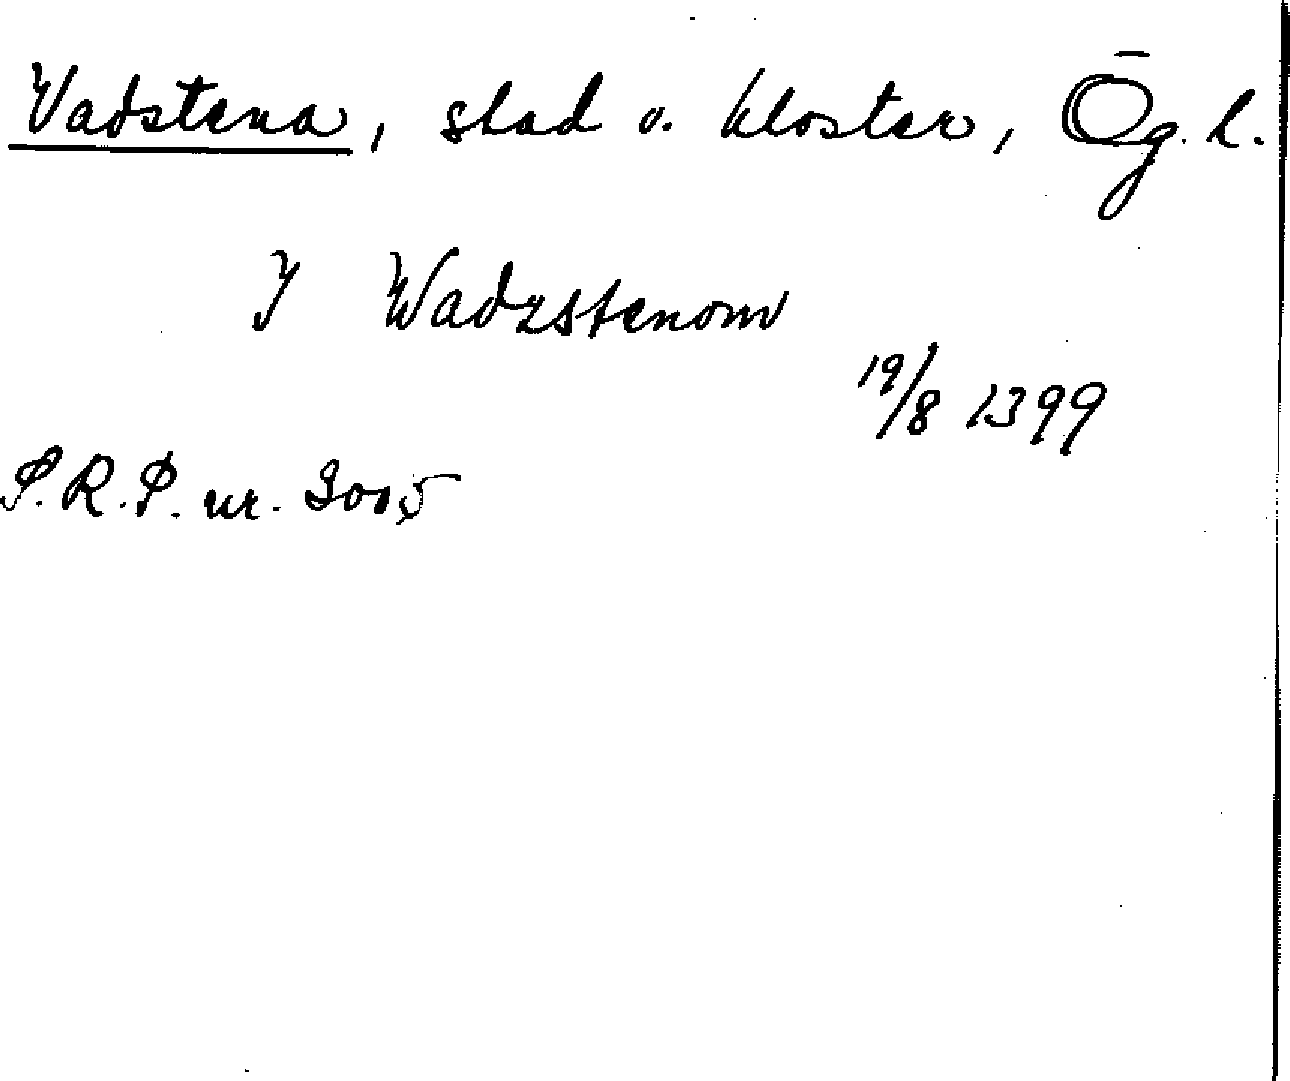 Vadstena, stad o. kloster, Ög. l.
I Wadzstenom
19/8 1399
S.R.P. nr. 3005